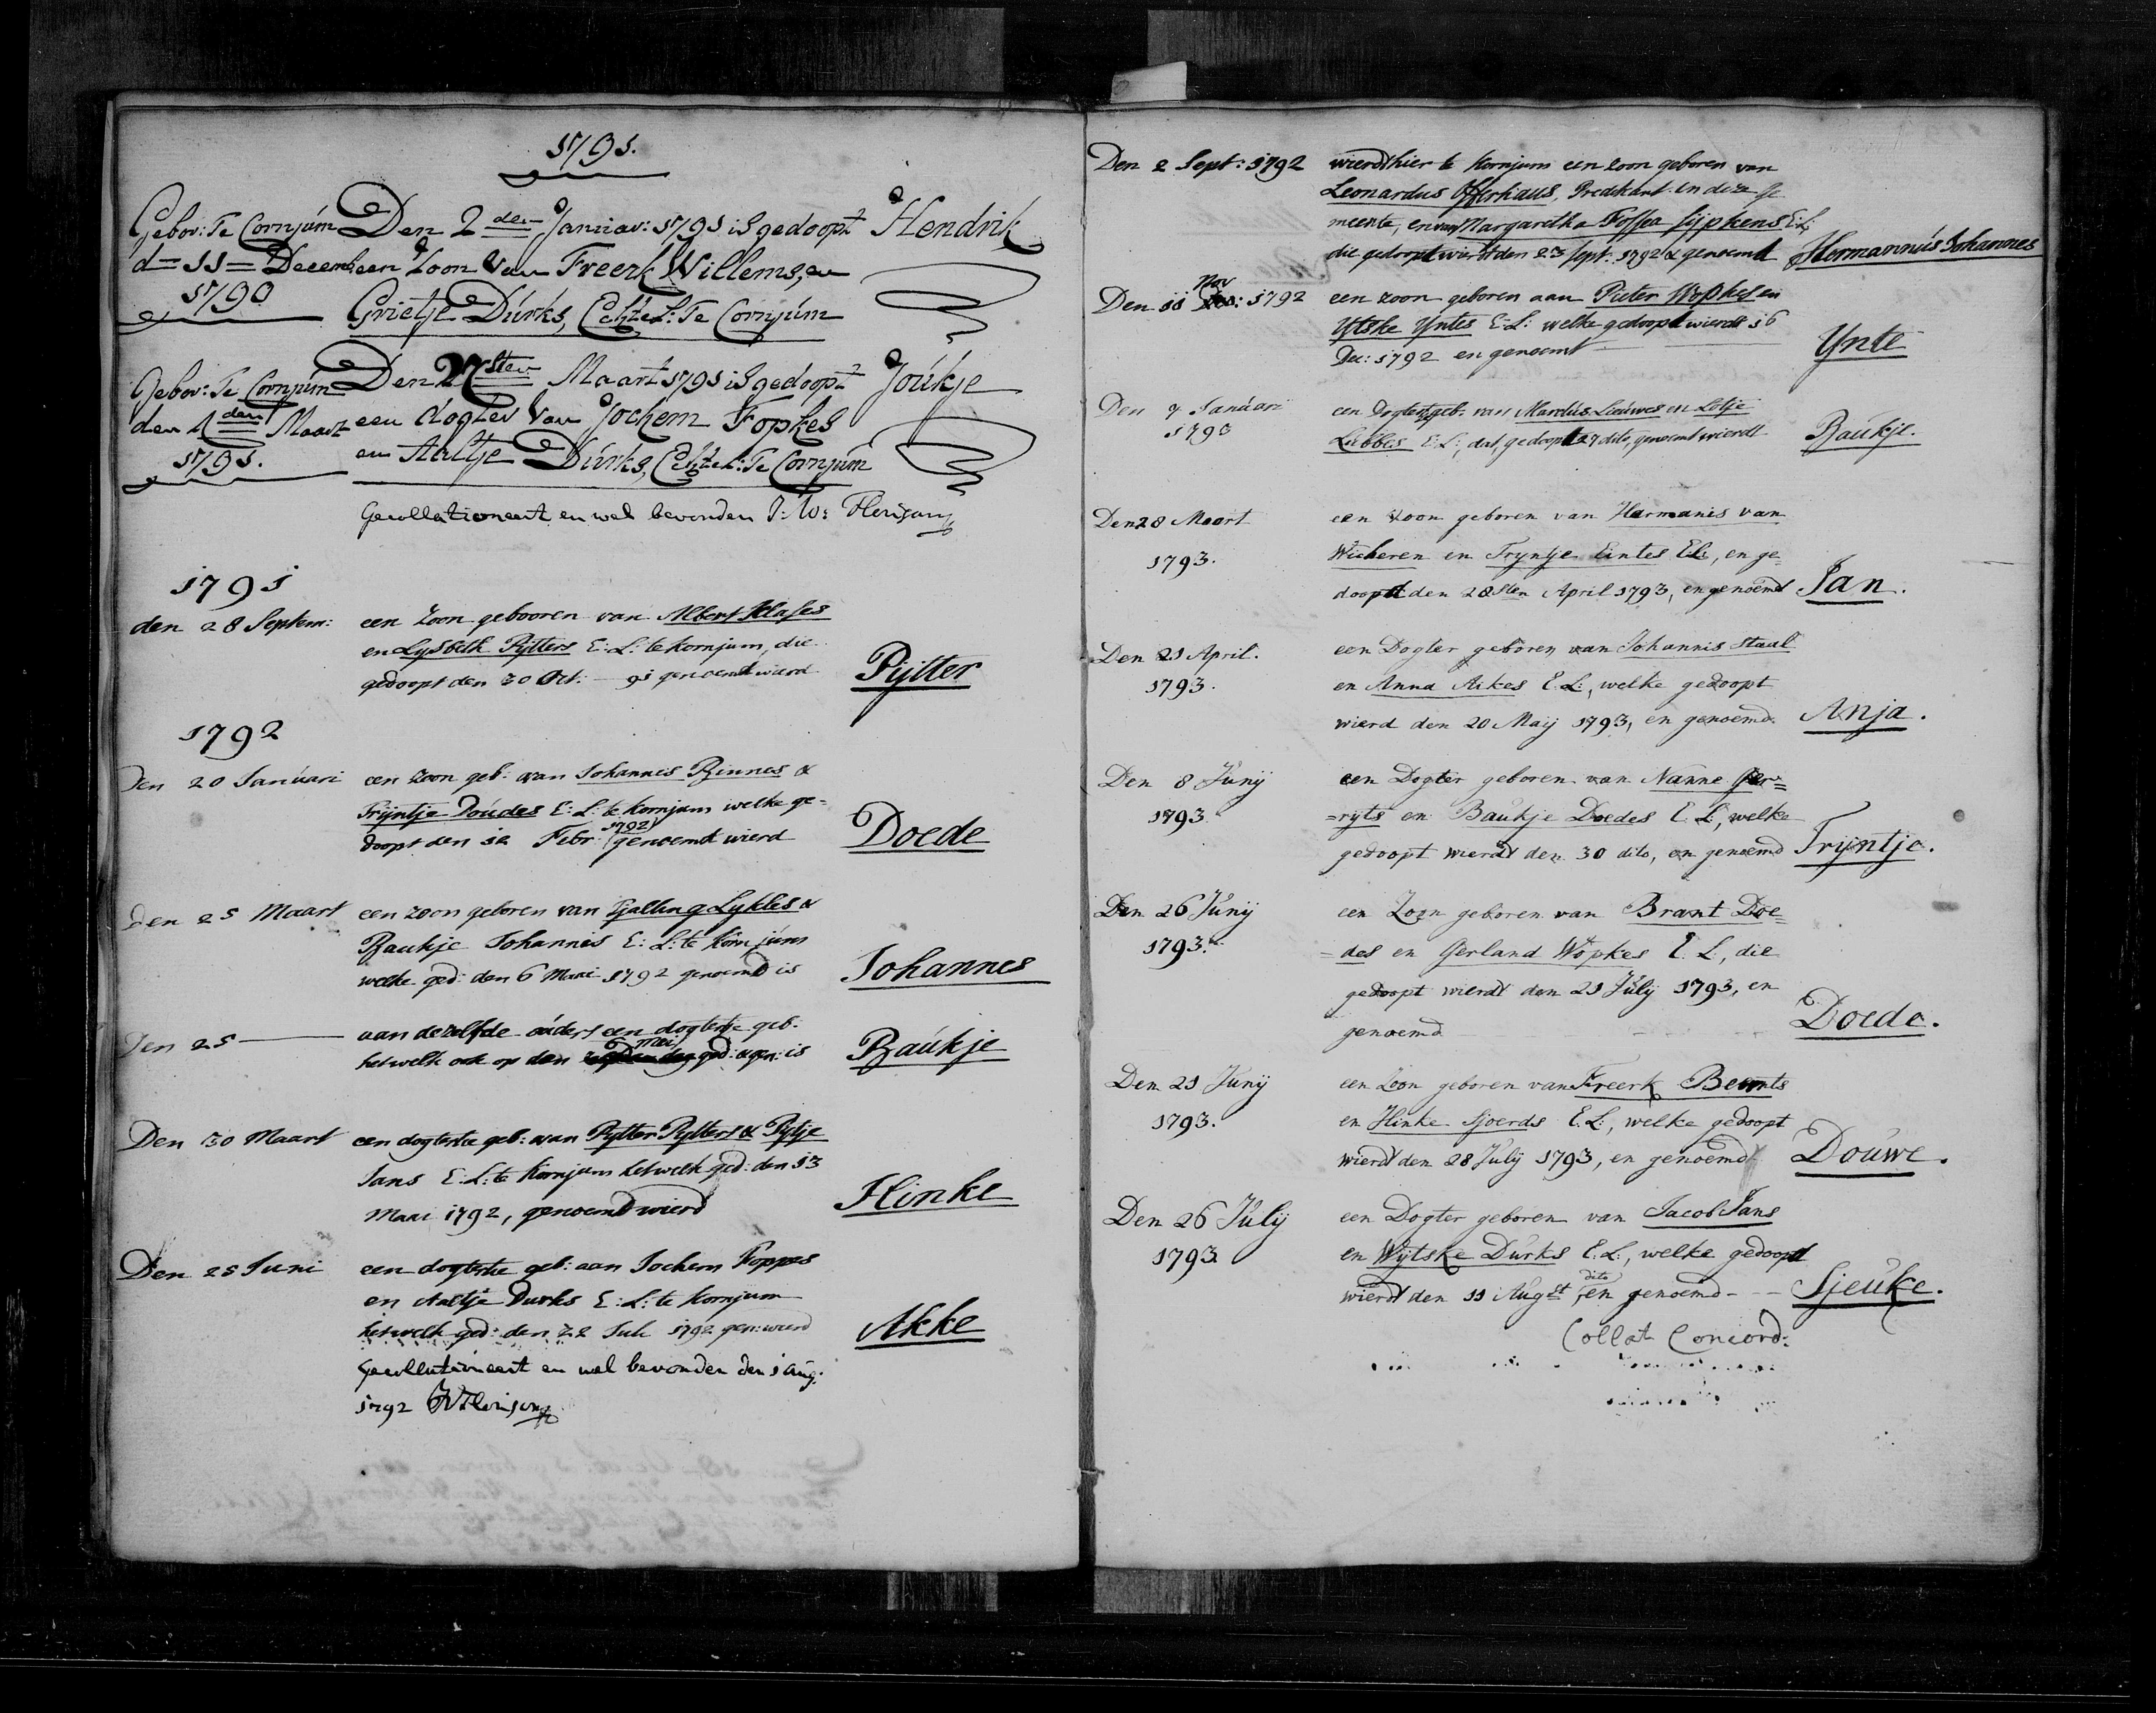 1791.
Gebor: Te Cornjúm Den 2den Januar: 1791 is gedoopt Hendrik
d= 11= Decemb een Zoon van Freerk Willems, en
1790
Grietje Dúrks, Echtel: Te Cornjúm
Gebor: Te Cornjúm Den 27sten Maart 1791 is gedoopt Joúkje
den 4den Maart een dogter van Jochem Fopkes
1791.
en Aaltje Dúrks, Echtel: Te Cornjúm
Gecollationeert en wel bevonden
1791
den 28 Septem: een Zoon gebooren van Albert Klases
en Lysbeth Pijtters E: L: te Kornjum, die
gedoopt den 30 Oct: - 91 genoemt wierd Pijtter
1792
Den 20 Janúari een zoon geb: van Johannes Rinnes &
Trijntje Doúdes E: L: te Kornjum welke ge=
doopt den 12 Febr: 1792 genoemt wierd Doede
Den 25 Maart een zoon geboren van Tjalling Lykles &
Baukje Johannes E: L: te Kornjúm
welke ged: den 6 Maei 1792 genoemd is Johannes
Den 25 — van dezelfde oúders een dogtertje geb.
hetwelk ook op den 6 Mei ged: & gen: is Baúkje
Den 30 Maart een dogtertie geb: van Pytter Pytters & Pytje
Jans E: L: te Kornjum hetwelk ged: den 13
Maei 1792, genoemd wierd Hinke
Den 25 Juni een dogtertie geb: aan Jochem Foppes
en Aaltje Durks E: L: te Kornjum
hetwelk ged: den 22 Juli 1792 gen: wierd Akke
Gecollationeert en wel bevonden den 1 aug:
1792
Den 2 Sept: 1792 wierd hier te Kornjum een zoon geboren van
Leonardus Offerhaus, Predikant in deze Ge
meente, en van Margaretha Fossa Sijpkens E: L:
die gedoopt wierdt den 23 Sept: 1792 & genoemd Hermannús Johannes
Nov
Den 11 1792 een zoon geboren aan Pieter Wopkes en
Ytske Yntes E: L: welke gedoopt wierdt 16
Dec: 1792 en genoemt Ynte
Den 7 Janúari een Dogtertje geb. van Mardús Lieúwes en Lotje
1793
Liebbes E: L:, dat, gedoopt 27 dito, genoemt wierdt Baúkje.
Den 28 Maart een zoon geboren van Harmanis van
1793. Wicheren en Tryntje Eintes E: L:, en ge=
doopt den 28sten April 1793, en genoemd Jan.
Den 21 April. een Dogter geboren van Johannis Staal
1793. en Anna Aikes E: L:, welke gedoopt
wierd den 20 Maij 1793, en genoemd. Anja.
Den 8 Júnij een Dogter geboren van Nanne Ger=
1793. =ryts en Baukje Doedes E: L:, welke
gedoopt wierdt den 30 dito, en genoemd Trijntje.
Den 26 Júnij een Zoon geboren van Brant Doe=
1793. =des en Gerland Wopkes E: L:, die
gedoopt wierdt den 21 Júlij 1793, en
genoemd Doede.
Den 21 Júnij een Zoon geboren van Freerk Beernts
1793. en Hinke Sjoerds E: L:, welke gedoopt
wierdt den 28 Júly 1793, en genoemd Doúwe.
Den 26 Júlij een Dogter geboren van Jacob Jans
1793. en Wijtske Dúrks E: L:, welke gedoopt
wierdt den 11 Augst dito, en genoemd - - - Sjeúke.
Collat Concord: